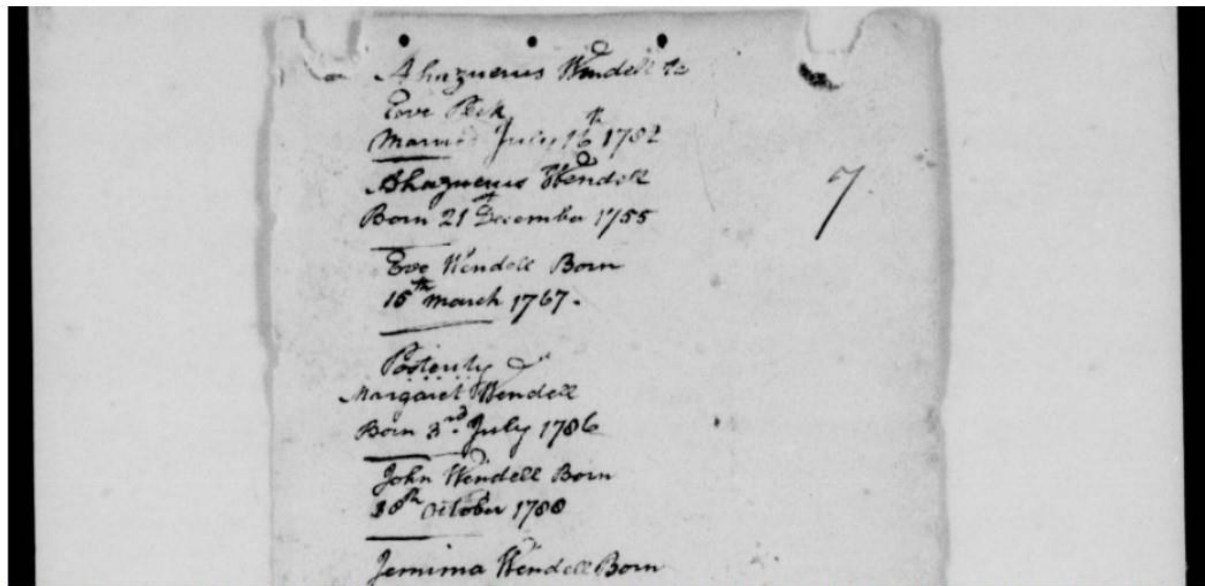 Ahazuerus Wendell to
Eve Peek
Married July 16th 1782
Ahazuerus Wendell
Born 21st December 1755
Eve Wendell Born
15th March 1767.
Posterity
Margaret Wendell
Born 3rd July 1786
John Wendell Born
30th October 1788
Jemima Wendell Born
7